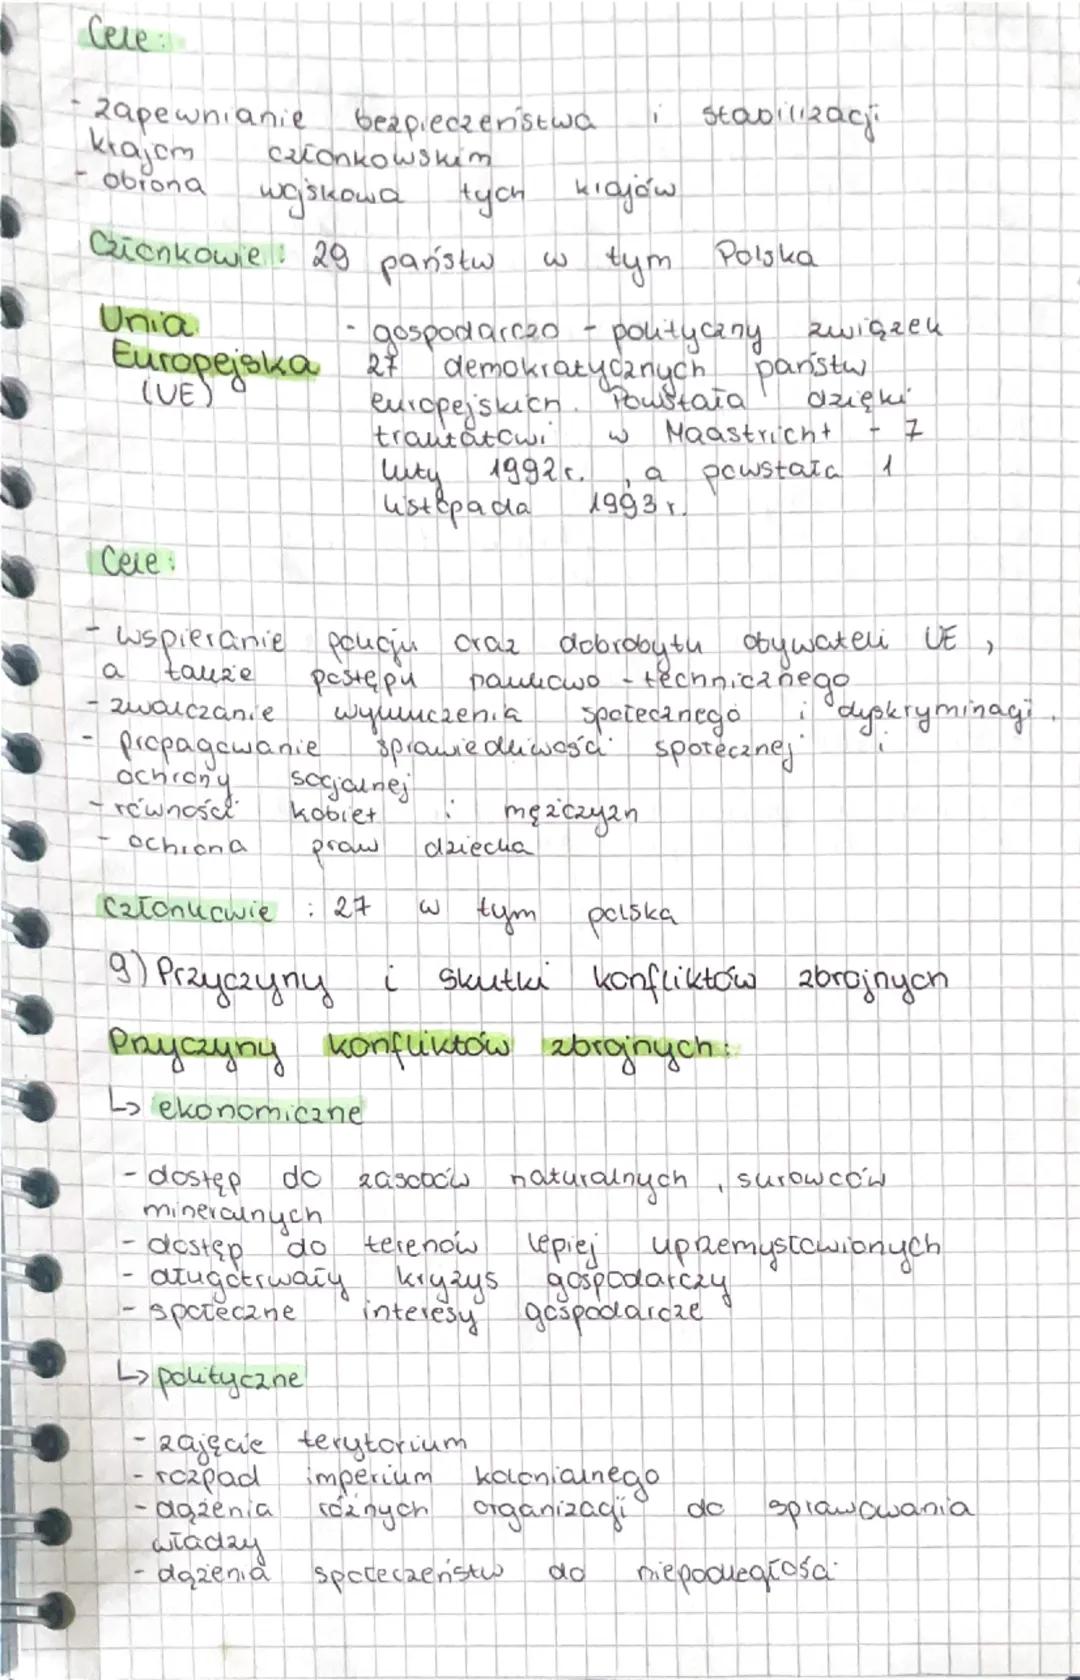 Cele:
- zapewnianie bezpieczeństwa i stabilizacji
krajom członkowskim
- obrona wojskowa tych krajów
Członkowie: 29 państw w tym Polska
Unia - gospodarczo - polityczny związek
Europejska 27 demokratycznych państw
(UE) europejskich. Powstała dzięki
traktatowi w Maastricht - 7
luty 1992r., a powstała 1
listopada 1993 r.
Cele:
- wspieranie pokoju oraz dobrobytu obywateli UE,
a także postępu naukowo - technicznego
- zwalczanie wykluczenia społecznego i dyskryminacji.
- propagowanie sprawiedliwości społecznej i
ochrony socjalnej
- równości kobiet i mężczyzn
- ochrona praw dziecka
Członkowie : 27 w tym polska
9) Przyczyny i skutki konfliktów zbrojnych
Przyczyny konfliktów zbrojnych:
↳ ekonomiczne
- dostęp do zasobów naturalnych, surowców
mineralnych
- dostęp do terenów lepiej uprzemysłowionych
- długotrwały kryzys gospodarczy
- społeczne interesy gospodarcze
↳ polityczne
- zajęcie terytorium
- rozpad imperium kolonialnego
- dążenia różnych organizacji do sprawowania
władzy
- dążenia społeczeństw do niepodległości